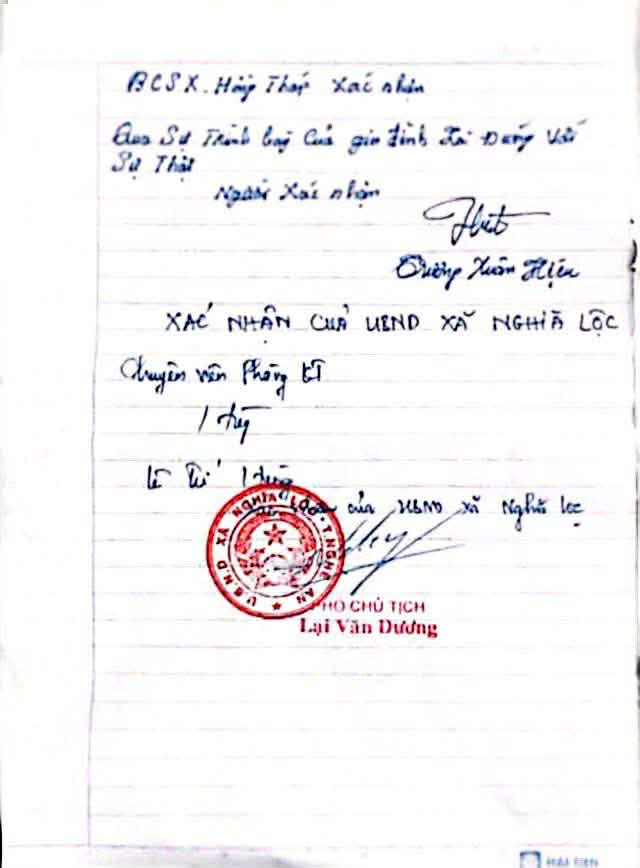 BCSX. Hồng Thập Xác nhận
Qua Sự Trình bày Của gia đình Là Đúng Với
Sự Thật
Người Xác nhận
Trương Xuân Hiệu
XÁC NHẬN CỦA UBND XÃ NGHĨA LỘC
Chuyên viên Phòng KT
của UBND xã Nghĩa Lộc
U.B.N.D XÃ NGHĨA LỘC T. NGHỆ AN
PHÓ CHỦ TỊCH
Lại Văn Dương
HẢI TIẾN